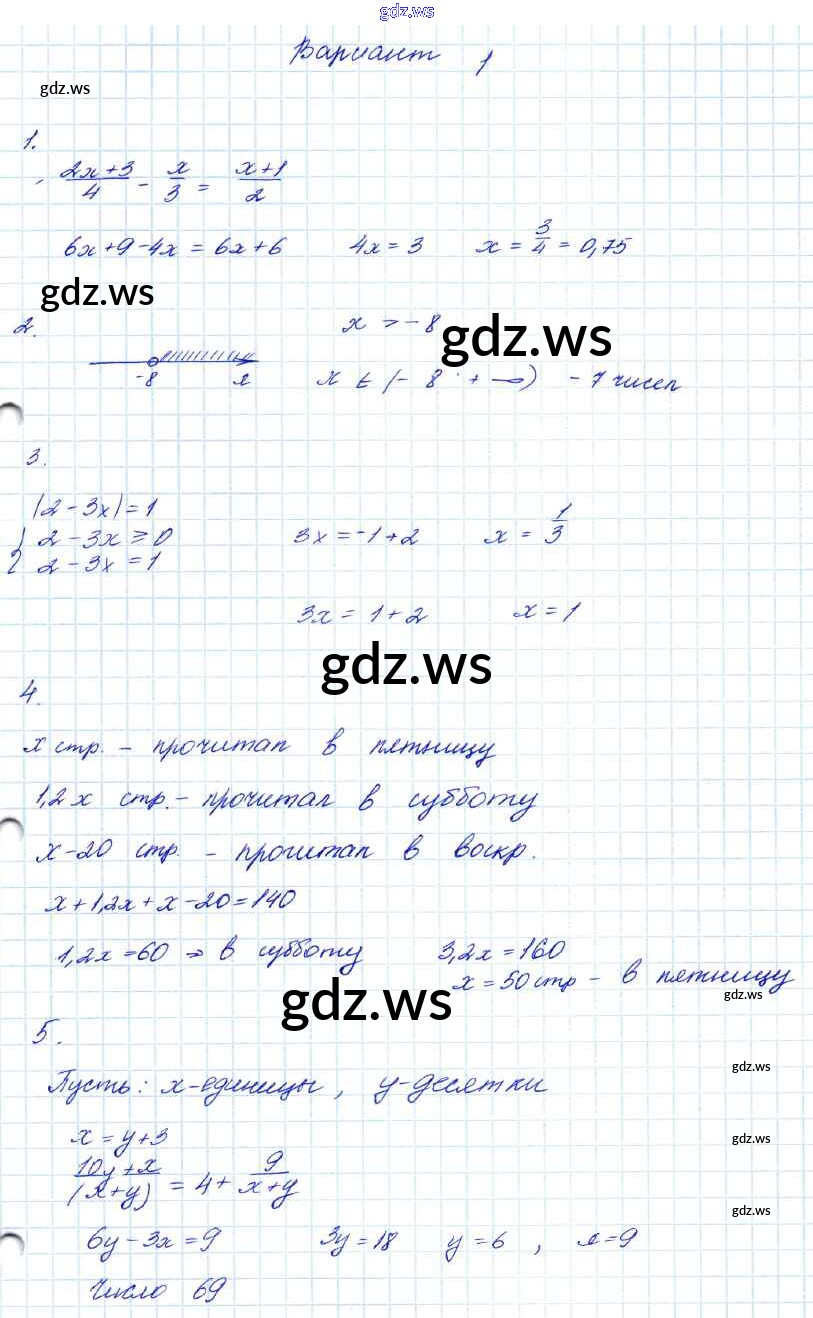 gdz.ws
Вариант 1
gdz.ws
1.
(2x+3)/4 - x/3 = (x+1)/2
6x+9-4x = 6x+6 4x=3 x = 3/4 = 0,75
gdz.ws
2. x > -8
gdz.ws
-8 x x ∈ (-8 ; +∞) - 7 чисел
3.
|2-3x|=1
{ 2-3x ≥ 0 3x = -1+2 x = 1/3
2-3x = 1
3x = 1+2 x = 1
gdz.ws
4.
x стр. - прочитал в пятницу
1,2x стр. - прочитал в субботу
x-20 стр. - прочитал в воскр.
x+1,2x+x-20=140
1,2x=60 => в субботу 3,2x=160
x=50 стр - в пятницу
gdz.ws
gdz.ws
5.
gdz.ws
Пусть: x-единицы, y-десятки
x = y+3
gdz.ws
(10y+x)/(x+y) = 4 + 9/(x+y)
gdz.ws
6y-3x=9 3y=18 y=6, x=9
Число 69